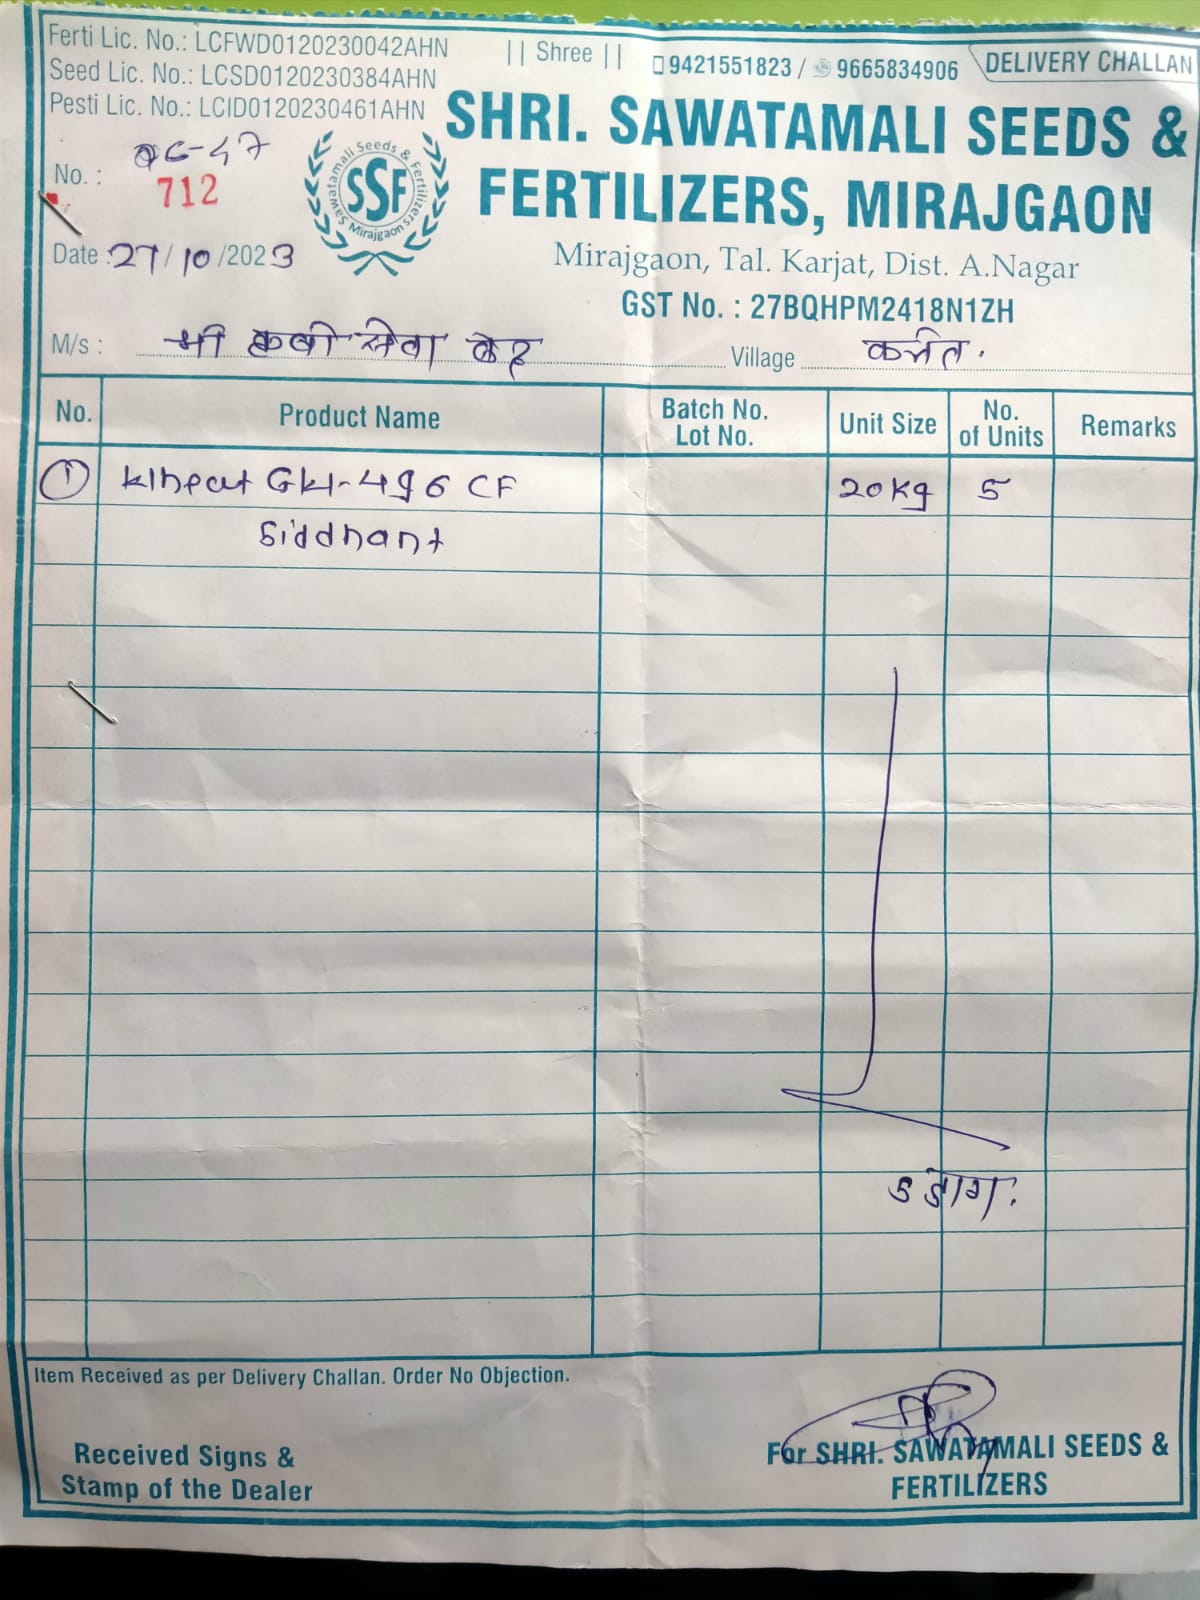 Ferti Lic. No.: LCFWD0120230042AHN
Seed Lic. No.: LCSD0120230384AHN
Pesti Lic. No.: LCID0120230461AHN
|| Shree ||
9421551823 / 9665834906
DELIVERY CHALLAN
SHRI. SAWATAMALI SEEDS &
FERTILIZERS, MIRAJGAON
Sawatamali Seeds & Fertilizers Mirajgaon
SSF
Mirajgaon, Tal. Karjat, Dist. A.Nagar
GST No. : 27BQHPM2418N1ZH
No. : 712
Date : 27/10/2023
M/s : श्री कृषी सेवा केंद्र Village
No. Product Name Batch No. Lot No. Unit Size No. of Units Remarks
① GH-496 CF 20Kg 5
Siddhant
5 बाग.
Item Received as per Delivery Challan. Order No Objection.
Received Signs &
Stamp of the Dealer
For SHRI. SAWATAMALI SEEDS &
FERTILIZERS